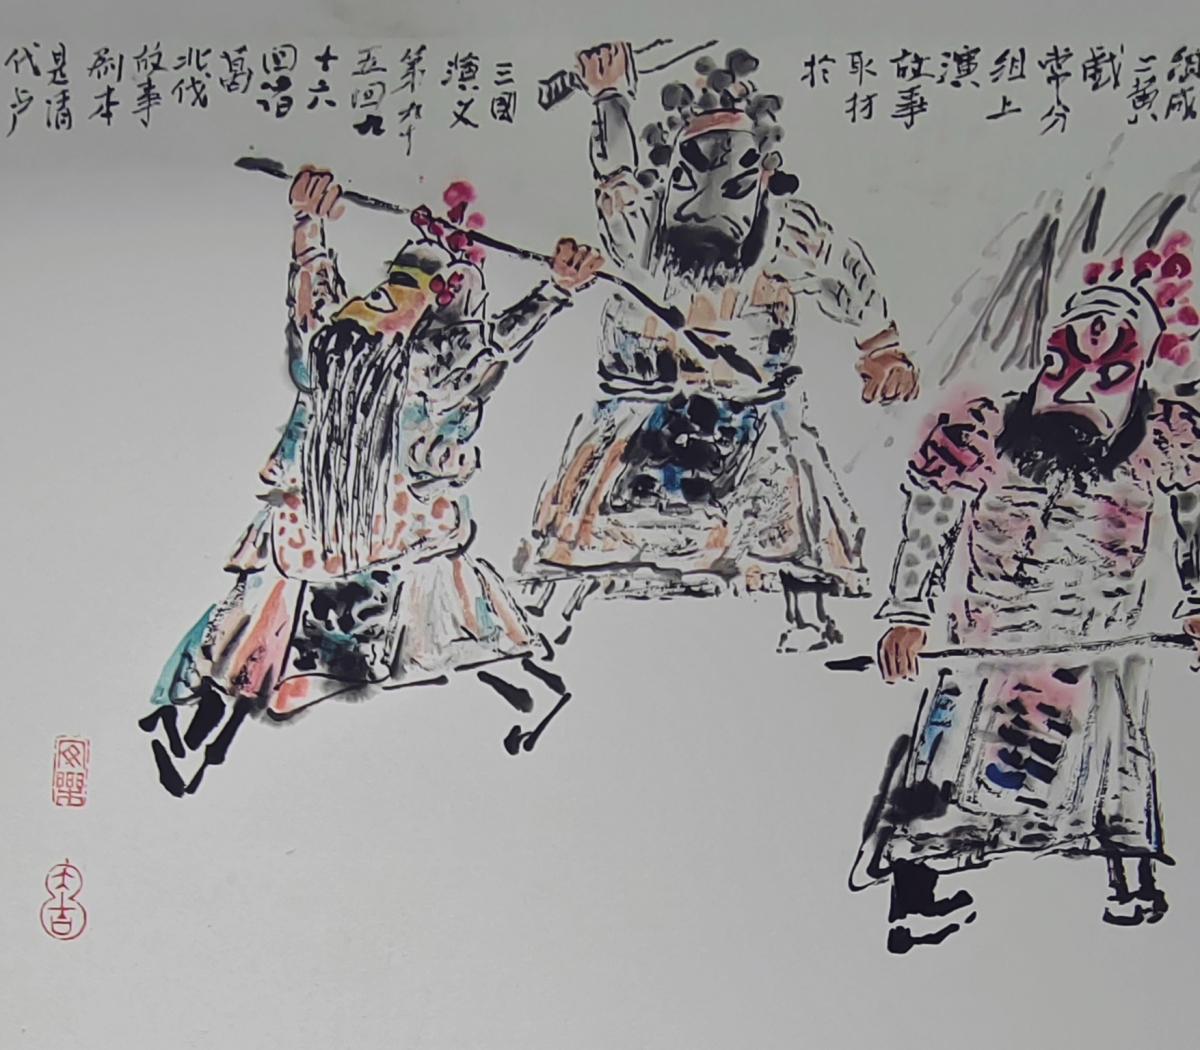 成
二黄
戲
常分
組上
演
故事
取材
於
三國
演义
第九十
五回九
十六
回诸
葛
北伐
故事
剧本
是清
代卢
大吉